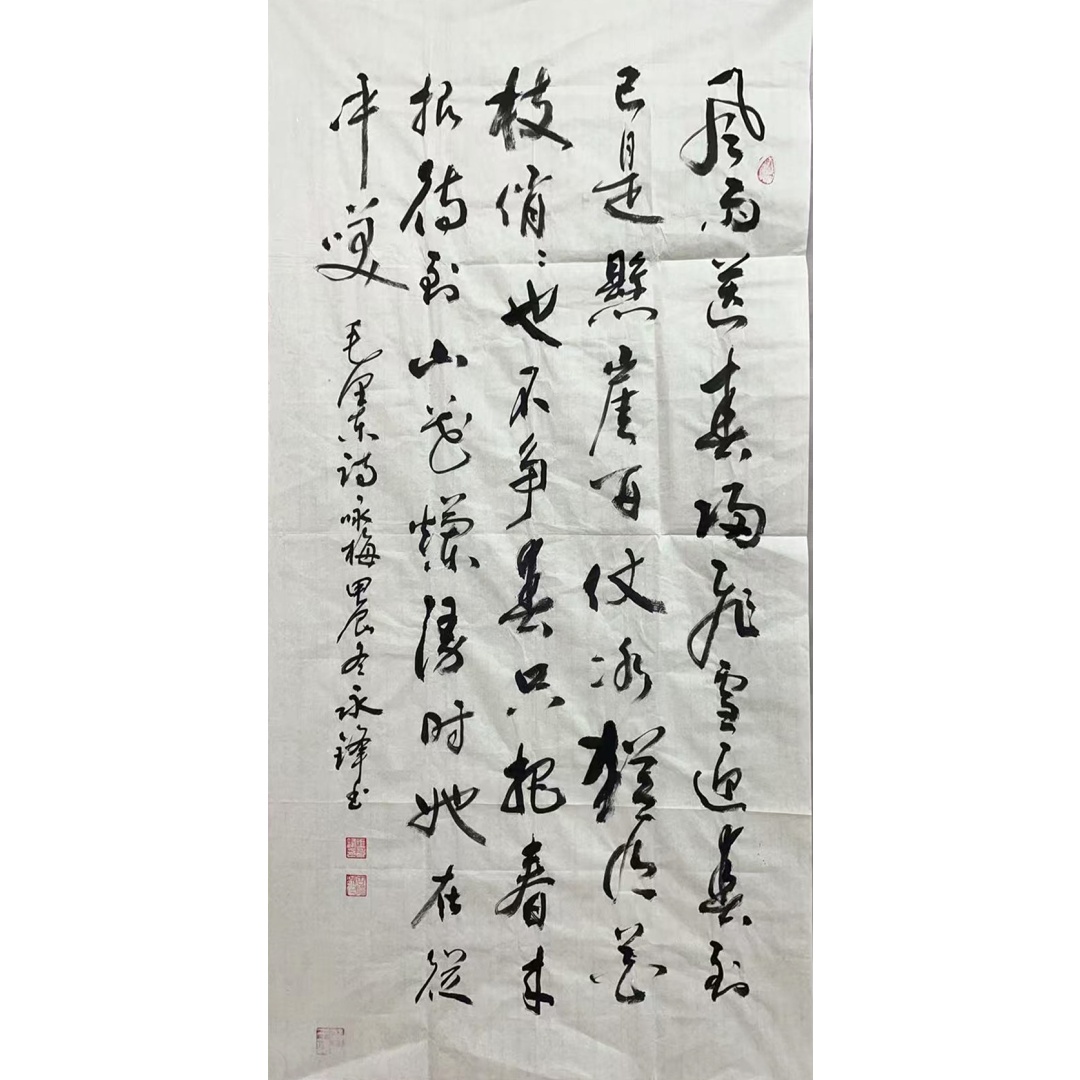 风雨送春归飞雪迎春到
已是懸崖百仗冰猶有花
枝俏：也不争春只把春来
报待到山花爛漫时她在從
中咲
毛泽东诗咏梅甲辰冬永锋书